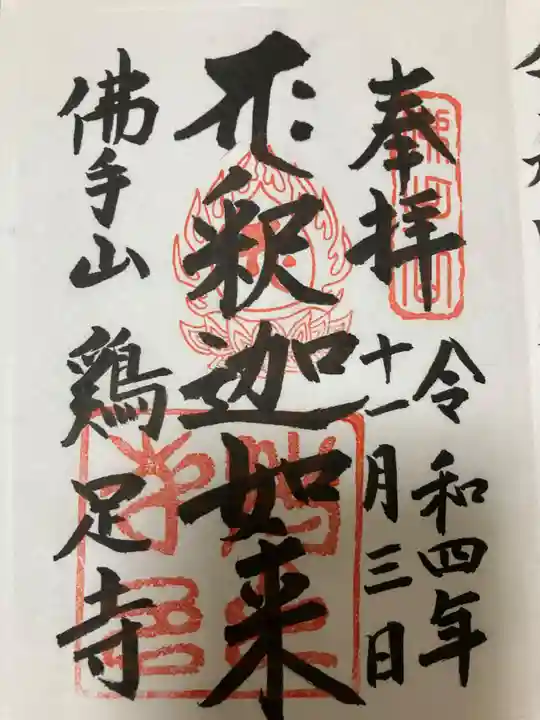 奉拝
令和四年
十一月三日
釈迦如来
佛手山 鶏足寺